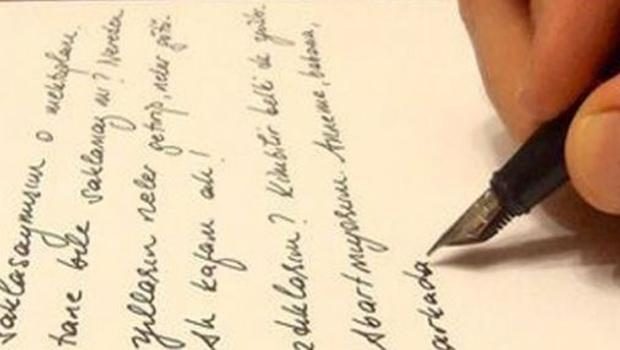 saklasaymışım o mektupları.
tane bile saklamaz mı? Nereden
yılların neler getirip, neler götü
Ah kafam ah!
zdıklarım? Kimbilir belki de yazdı
Abartmıyorum. Anneme, babama,
arkada